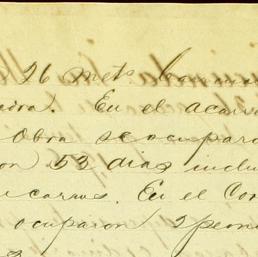 26 mets.
En el acar
Obra se ocuparo
on 53 dias inclu
carros. En el Con
ocuparon 2 peon